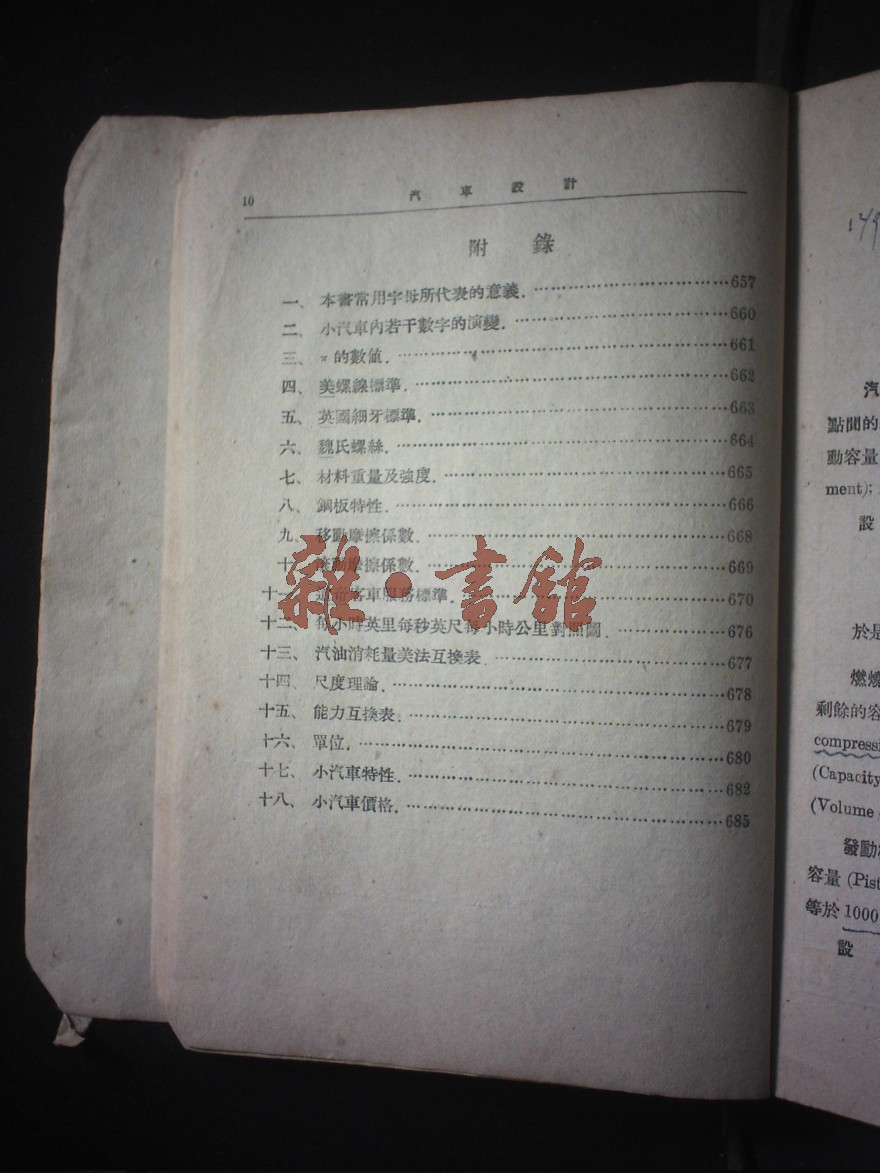 10 汽車設計
附錄
一、本書常用字母所代表的意義.……657
二、小汽車內若干數字的演變.……660
三、π的數值.……661
四、美螺線標準.……662
五、英國細牙標準.……663
六、魏氏螺絲.……664
七、材料重量及強度.……665
八、鋼板特性.……666
九、移動摩擦係數.……668
十、滾動摩擦係數.……669
十一、客車服務標準.……670
十二、每小時英里每秒英尺每小時公里對照圖.……676
十三、汽油消耗量美法互換表.……677
十四、尺度理論.……678
十五、能力互換表.……679
十六、單位.……680
十七、小汽車特性.……682
十八、小汽車價格.……685
雜·書館
汽
點間的
動容量
ment);
設
於是
燃燒
剩餘的容
compressi
(Capacity
(Volume
發動
容量 (Pist
等於 1000
設